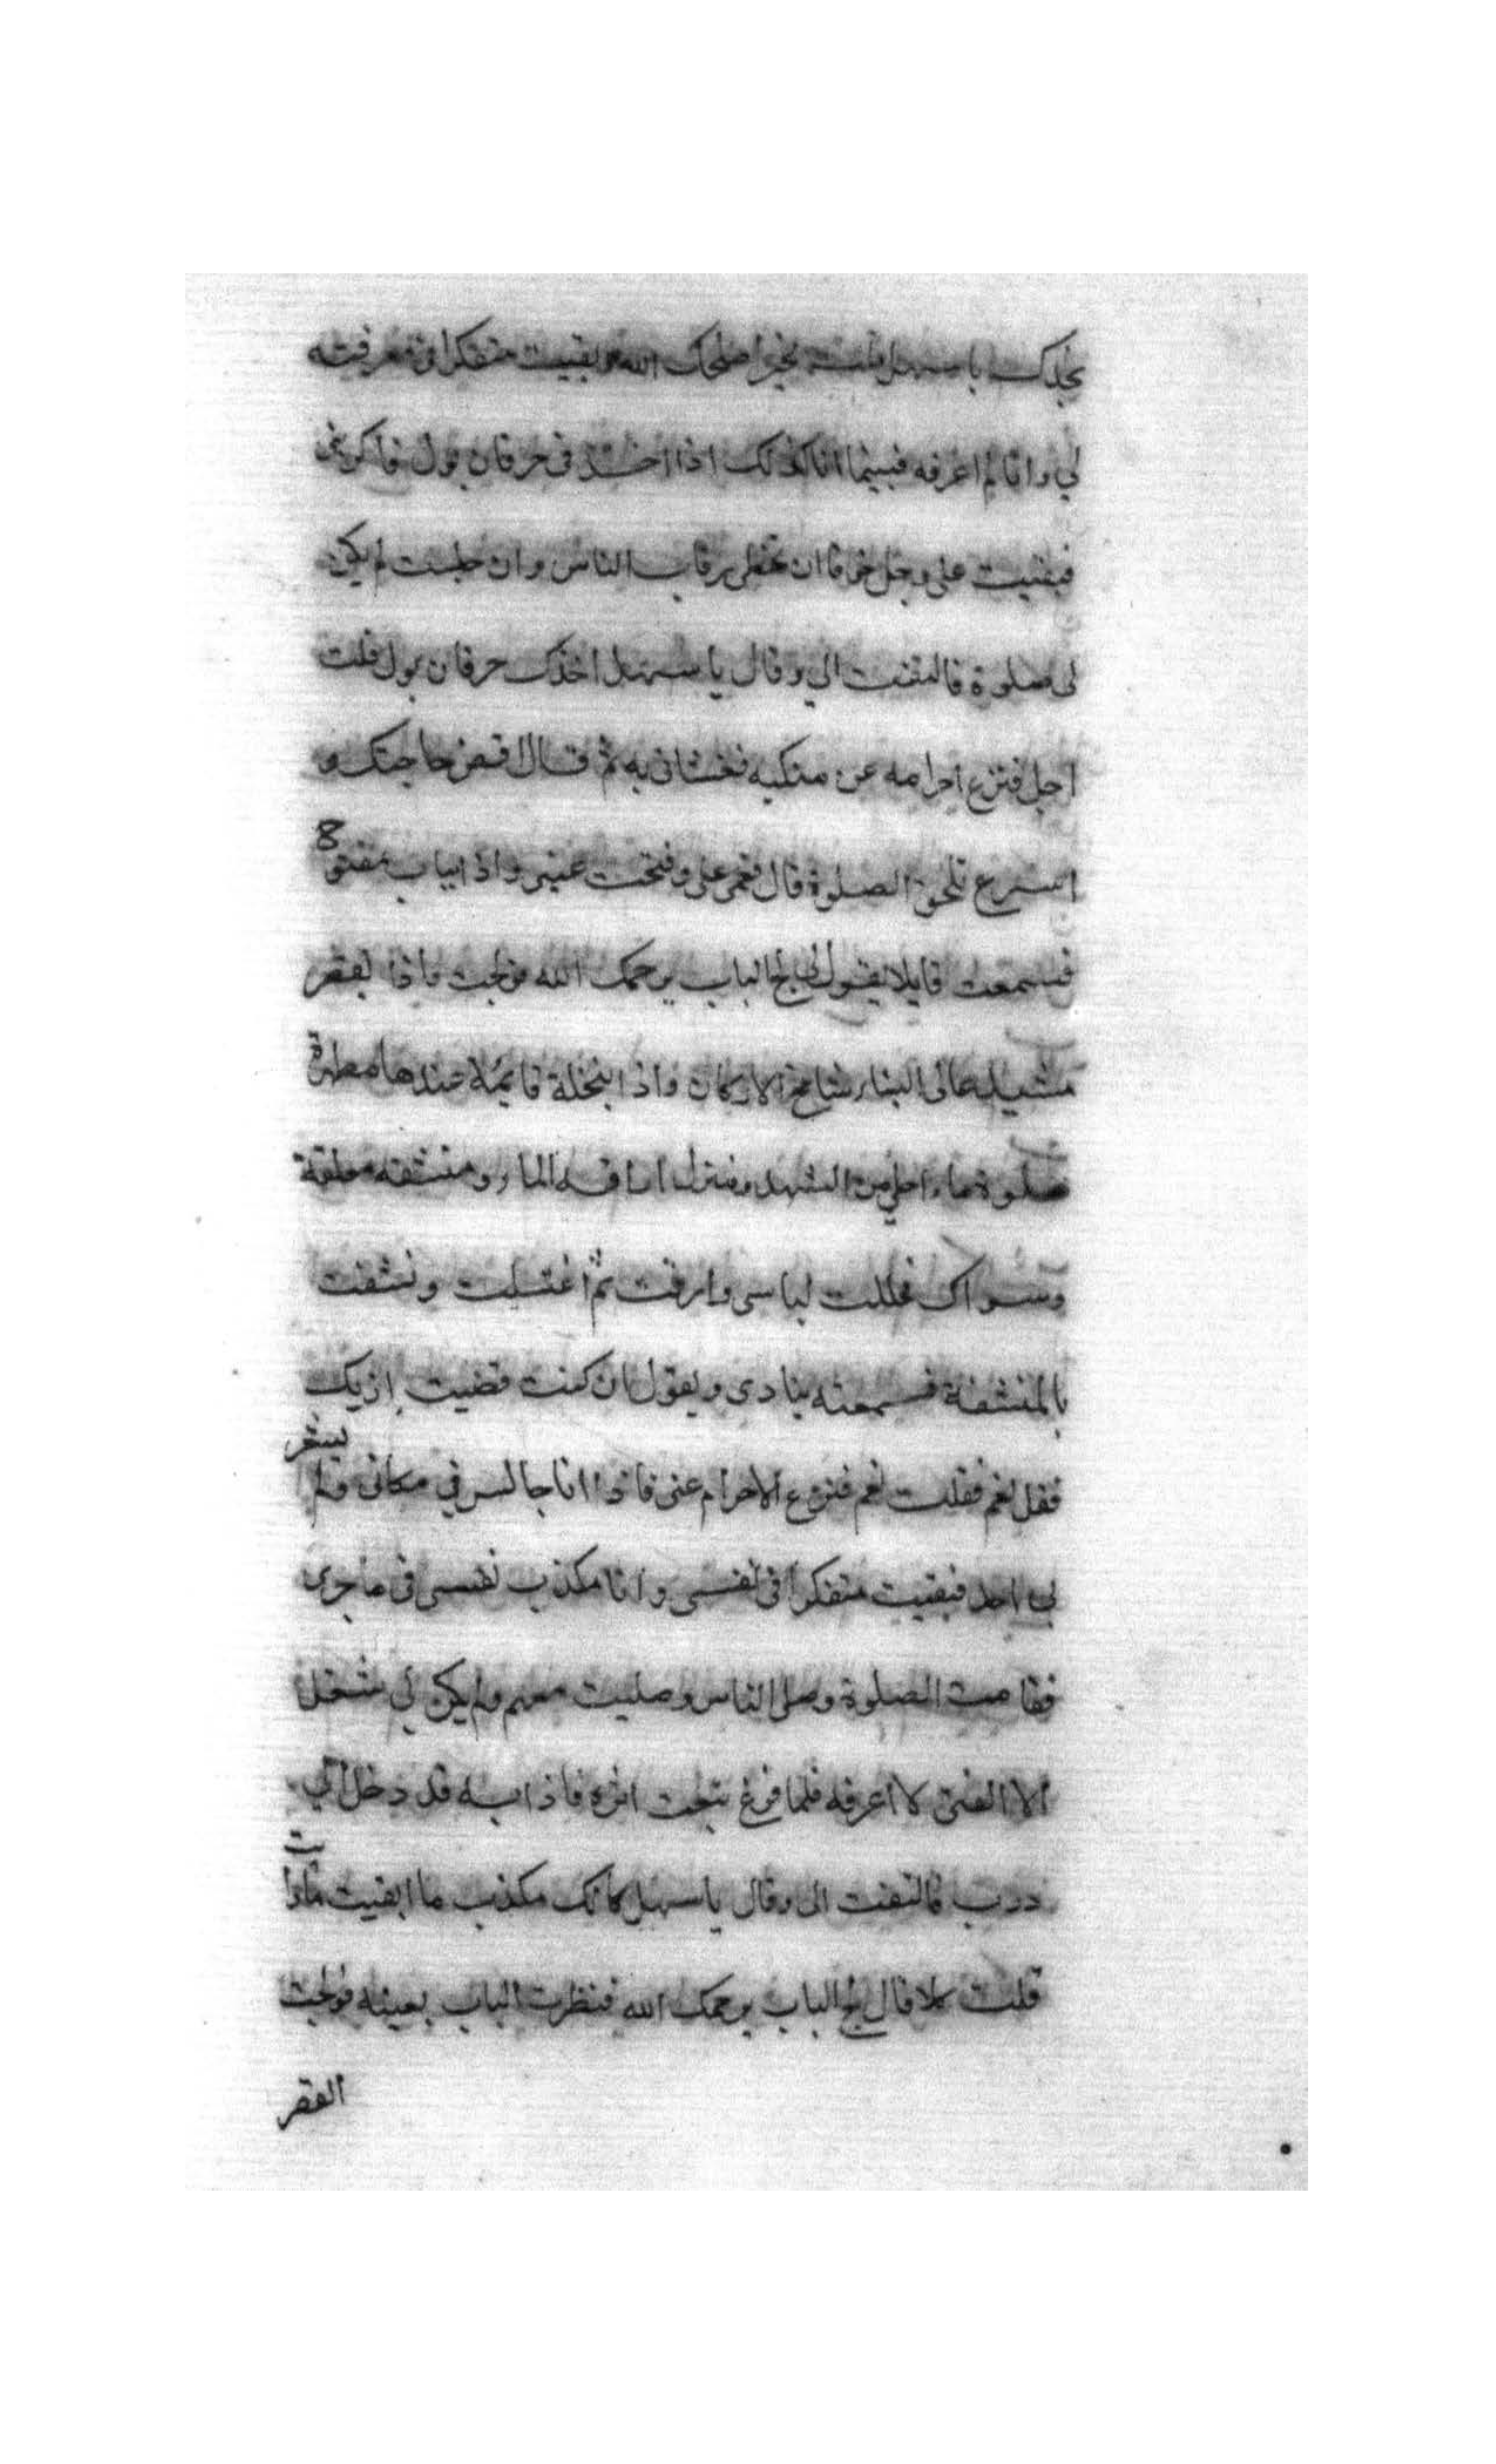 نجدك يا سهل قلت بخير اصلحك الله وبقيت متفكرا في معرفته
لي وانا لم اعرفه فبينما انا كذلك اذا اخذني حرقان بول فاكربني
فبقيت على وجل خوفا ان تخطى رقاب الناس وان جلست لم يكن
لي صلوة فالتفت الي وقال يا سهل اخذك حرقان بول قلت
اجل فنزع احرامه عن منكبه فغشاني به ثم قال اقض حاجتك و
اسرع تلحق الصلوة قال فغمي على وفتحت عيني واذا بباب مفتوح
فسمعت قايلا يقول لي لج الباب يرحمك الله فولجت فاذا بقصر
مشيد عالي البناء شامخ الاركان واذا بنخلة قايمة عندها مطهرة
مملوة ماء احلى من الشهد ومنزل اراقة الماء ومنشفه معلقة
وسواك فحللت لباسي وارقت ثم اغتسلت ونشفت
بالمنشفة فسمعته ينادى ويقول ان كنت قضيت اربك
فقل نعم فقلت نعم فنزع الاحرام عني فاذا انا جالس في مكاني ولم يشعر
بي احد فبقيت متفكرا في نفسي وانا مكذب نفسي في ما جرى
فقامت الصلوة وصلى الناس وصليت معهم ولم يكن لي شغل
الا الفتى لا اعرفه فلما فرغ تتبعت اثره فاذا به قد دخل الي
درب فالتفت الى وقال يا سهل كانك مكذب ما ايقنت بما رايت
قلت كلا قال لج الباب يرحمك الله فنظرت الباب بعينه فولجت
القصر